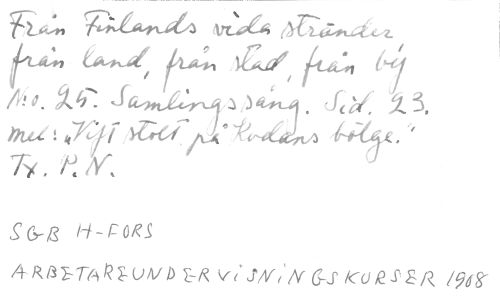 Från Finlands vida stränder
från land, från stad, från by
N:o. 25. Samlingssång. Sid. 23.
mel: „Vift stolt på Kodans bölge."
Tx. P. N.
SGB H-FORS
ARBETAREUNDERVISNINGSKURSER 1908